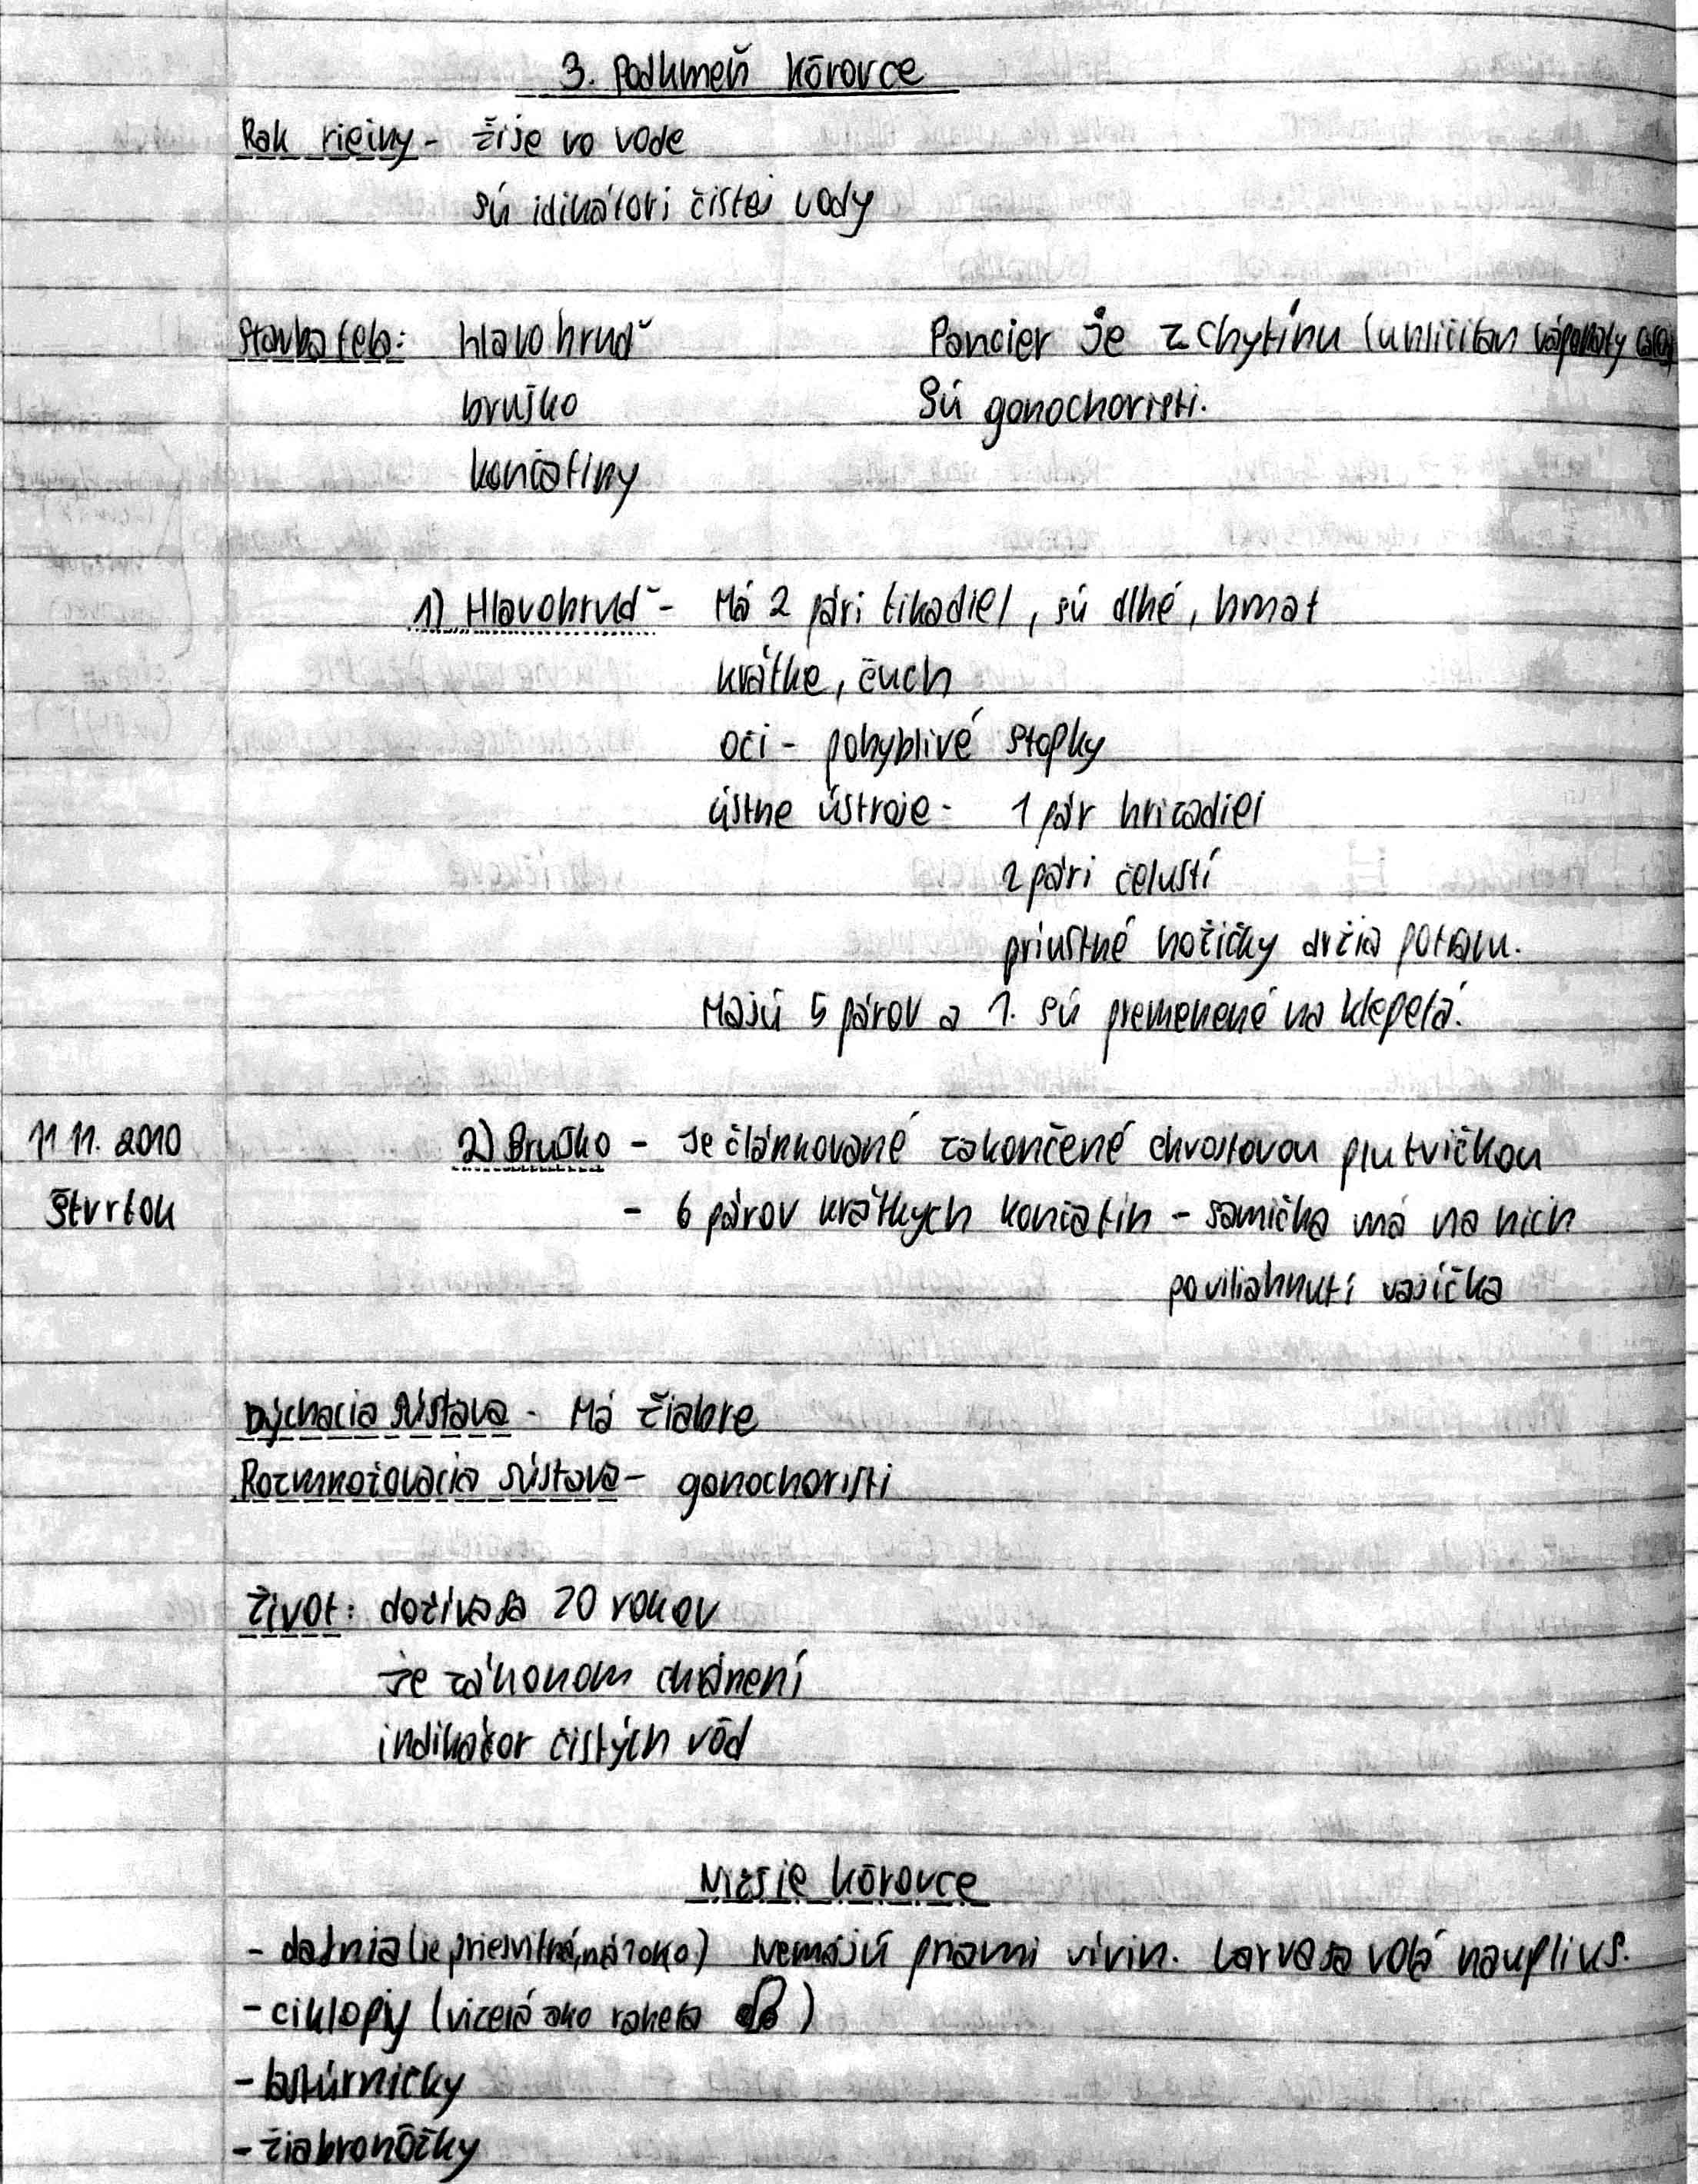 3. Podkmeň kôrovce
Rak riečny - žije vo vode
sú idikátori čistej vody
Stavba tela: hlavohruď Pancier je z chytínu (uhličitan vápenatý
bruško Sú gonochoristi.
končatiny
1) Hlavohruď - Má 2 pári tikadiel, sú dlhé, hmat
krátke, čuch
oči - pohyblivé stopky
ústne ústroje - 1 pár hrizadiel
2 pári čelustí
priustné nožičky držia potravu.
Majú 5 párov a 1. sú premenené na klepetá.
11 11. 2010 2) Bruško - Je článkované zakončené chvostovou plutvičkou
štvrtok - 6 párov krátkych končatín - samička má na nich
poviliahnutí vajíčka
Dýchacia sústava - Má žiabre
Rozmnožovacia sústava - gonochoristi
Život: dožíva sa 20 rokov
Je zákonom chránení
indikátor čistých vôd
Nižšie kôrovce
- dafnia (je priesvitná, má 1 oko) Nemajú priami vívin. Larva sa volá nauplius.
- ciklopy (vizerá ako raketa )
- lastúrničky
- žiabronôžky